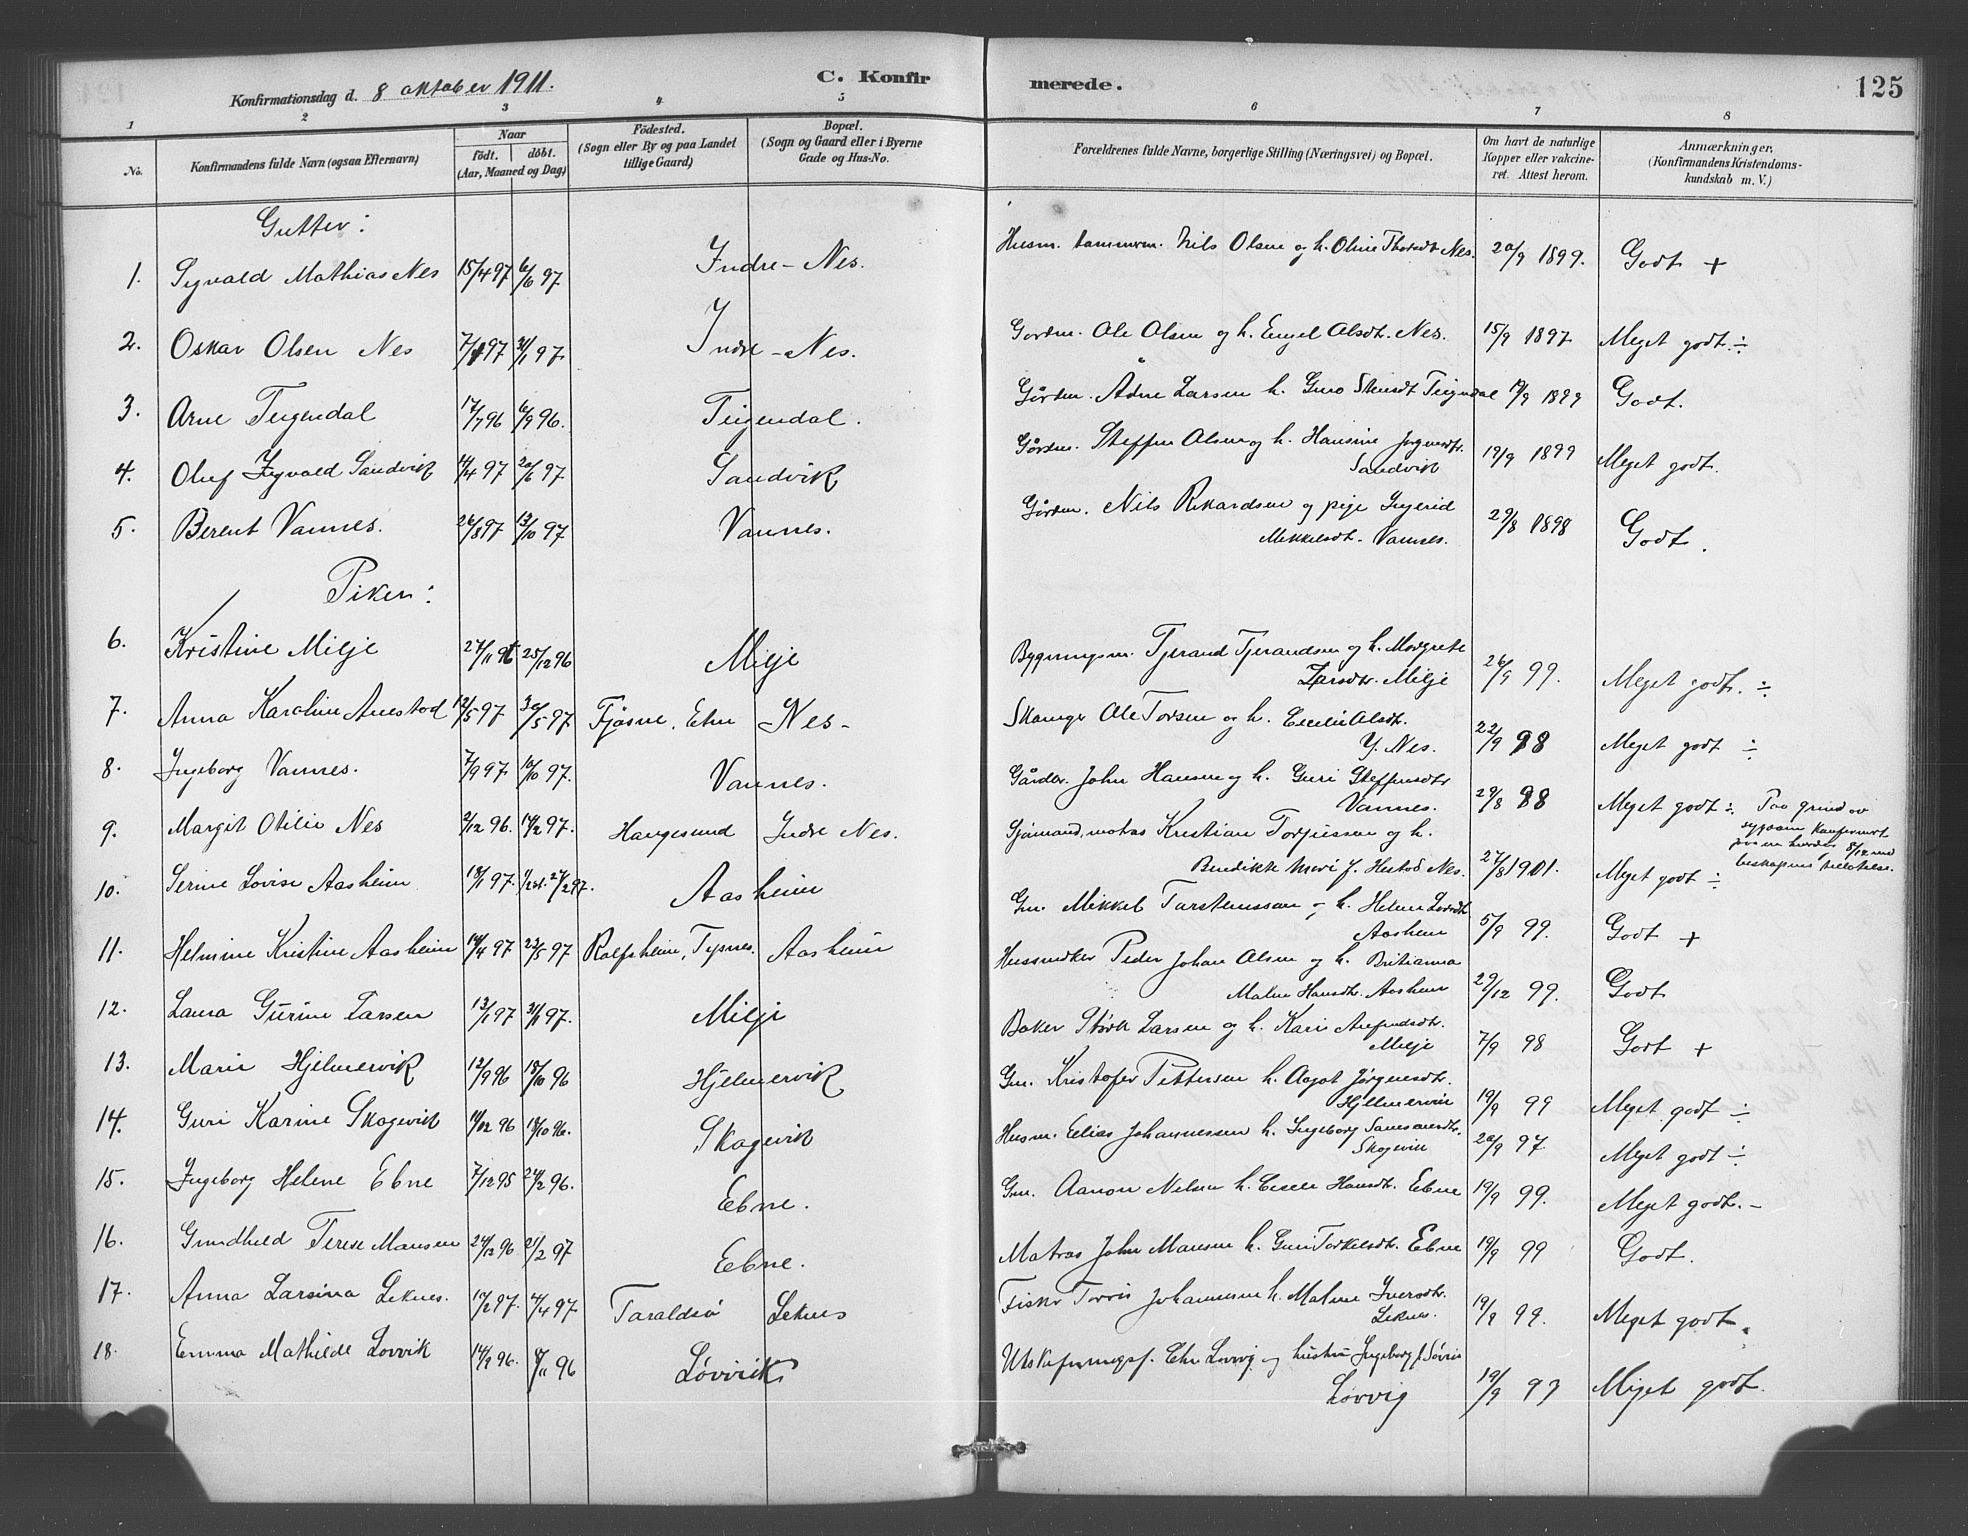 Konfirmationsdag d. 8 oktober 1911. C. Konfirmerede. 125
1 2 3 4 5 6 7 8
No. Konfirmandens fulde Navn (ogsaa Efternavn) Naar födt. döbt. (Aar, Maaned og Dag) Födested. (Sogn eller By og paa Landet tillige Gaard) Bopæl. (Sogn og Gaard eller i Byerne Gade og Hus-No. Forældrenes fulde Navne, borgerlige Stilling (Næringsvei) og Bopæl. Om havt de naturlige Kopper eller vakcineret. Attest herom. Anmærkninger. (Konfirmandens Kristendomskundskab m. V.)
Gutter:
1. Sigvald Mathias Nes 15/4 97 6/6 97 Indre - Nes. Husm. tømmerm. Nils Olsen og h. Oline Thorsdtr Nes. 20/9 1899. Godt +
2. Oskar Olsen Nes 97 97 Indre - Nes. Gordm. Ole Olsen og h. Engel Olsdtr. Nes. 15/9 1897 Meget godt. ÷
3. Arne Teigendal 17/7 96 6/9 96. Teigendal. Gårdm. Ådne Larsen h. Guro Teigendal 1899 Godt.
4. Oluf Sigvald Sandvik 97 20/6 97 Sandvik Gårdm. Steffen Olsen og h. Hansine
Sandvik 19/9 1899 Meget godt.
5. Berent Vannes. 26/8 97 13/10 97 Vannes. Gårdm. Nils Rikardsen og pige Ingerid
Mikkelsdtr. Vannes. 29/8 1898 Godt.
Piker:
6. Kristine Milje 27/11 96 25/12 96 Milje Bygningsm. Tjerand Tjerandsen og h. Margrete
Larsdtr. Milje 26/9 99. Meget godt. ÷
7. Anna Karoline Auestad 12/5 97 30/5 97 Fjøsne, Etne Nes - Ole Torsen og h. Cecilie Olsdtr.
Y. Nes. 22/9 98 Meget godt ÷
8. Ingeborg Vannes. 7/9 97 10/10 97. Vannes. Gårdbr. John Hansen og h. Guri Steffensdtr
Vannes. 29/8 98 Meget godt ÷
9. Margit Otilie Nes 2/12 96. 14/2 97. Haugesund Indre Nes. Sjømand, matros Kristian Torjussen og h.
Bendikte Marie f. Hestad Nes. 27/8 1901. Meget godt ÷ Paa grund av sygdom konfirmert
10. Serine Lovise Aasheim 18/1 97. 97. Aasheim Gm. Mikkel Torstenssøn og h. Helene
Aasheim 5/9 99. Godt +
11. Helmine Kristine Aasheim 14/4 97 23/5 97 Rolfsheim, Tysnes. Aasheim Peder Johan Olsen og h. Britianna
Malene Hansdtr. Aasheim 29/12 99. Godt
12. Laura Gurine Larsen 13/1 97 97. Milje Baker Størk Larsen og h. Kari
Milje 7/9 98 Godt +
13. Marie Hjelmervik 12/9 96 18/10 96 Hjelmervik Gm. Kristofer Pettersen h. Aagot Jørgensdtr.
Hjelmervik 19/9 99 Meget godt ÷
14. Guri Karine Skogevik 96 18/10 96. Skogevik Husm. Elias Johannessen h. Ingeborg
Skogevik 20/9 97 Meget godt ÷
15. Ingeborg Helene Ebne 7/12 95 2/2 96. Ebne. Gm. Aanon Nelsen h. Cecele Hansdtr. Ebne 19/9 99. Meget godt. -
16. Gundhild Terese Monsen 24/12 96 21/2 97 Ebne. Matros John Monsen h. Guri Torkelsdtr. Ebne 19/9 99 Godt.
17. Anna Larsina Leknes. 97. 97 Taraldsø Leknes Fisker Torris Johannesen h. Malene Iversdtr.
Leknes. 99. Meget godt.
18. Emma Mathilde Lovvik 14/9 96. 8/11 96 Løvvik Utskiftningsf. Elr Lovvig og hustru Ingeborg f.
Løvvig 19/9 99 Meget godt.